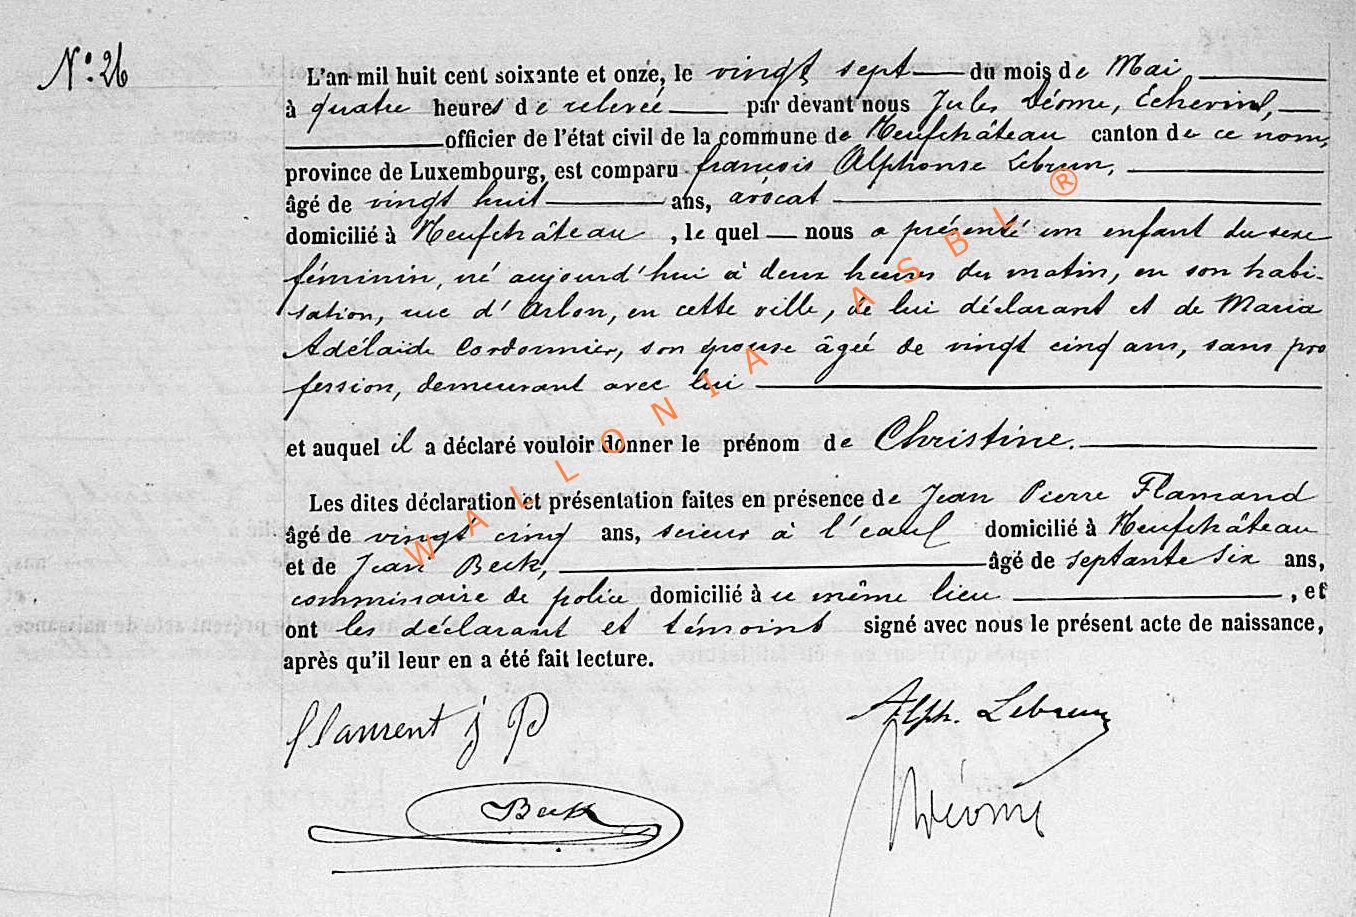 N° 26
L'an mil huit cent soixante et onze, le vingt sept du mois de Mai
à quatre heures de relevée par devant nous Jules Déome, Echevin,
officier de l'état civil de la commune de Neufchâteau canton de ce nom,
province de Luxembourg, est comparu françois Alphonse Lebrun,
âgé de vingt huit ans, avocat
domicilié à Neufchâteau, le quel nous a présenté un enfant du sexe
féminin, né aujourd'hui à deux heures du matin, en son habi-
tation, rue d'Arlon, en cette ville, de lui déclarant et de Maria
Adélaïde Cordonnier, son épouse âgée de vingt cinq ans, sans pro
fession, demeurant avec lui
et auquel il a déclaré vouloir donner le prénom de Christine.
Les dites déclaration et présentation faites en présence de Jean Pierre Flamand
âgé de vingt cinq ans, scieur à l'eau domicilié à Neufchâteau
et de Jean Beck, âgé de septante six ans,
commissaire de police domicilié à ce même lieu, et
ont les déclarant et témoins signé avec nous le présent acte de naissance,
après qu'il leur en a été fait lecture.
Alph. Lebrun
Beck
Déome
WALLONIA ASBL ®